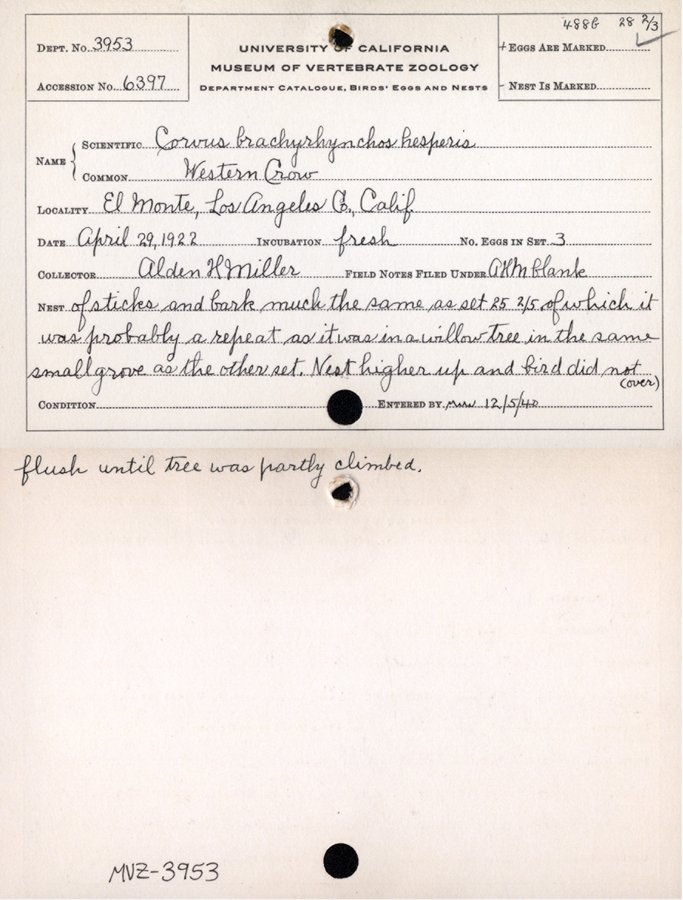 488b 28 2/3
DEPT. NO. 3953
UNIVERSITY OF CALIFORNIA
+ EGGS ARE MARKED
MUSEUM OF VERTEBRATE ZOOLOGY
ACCESSION NO. 6397
DEPARTMENT CATALOGUE, BIRDS' EGGS AND NESTS
- NEST IS MARKED
NAME { SCIENTIFIC Corvus brachyrhynchos hesperis
COMMON Western Crow
LOCALITY El Monte, Los Angeles Co., Calif.
DATE April 29, 1922 INCUBATION fresh NO. EGGS IN SET 3
COLLECTOR Alden H Miller FIELD NOTES FILED UNDER AHM blank
NEST of sticks and bark much the same as set 25 2/5 of which it
was probably a repeat as it was in a willow tree in the same
small grove as the other set. Nest higher up and bird did not
(over)
CONDITION ENTERED BY mew 12/5/40
flush until tree was partly climbed.
MVZ-3953